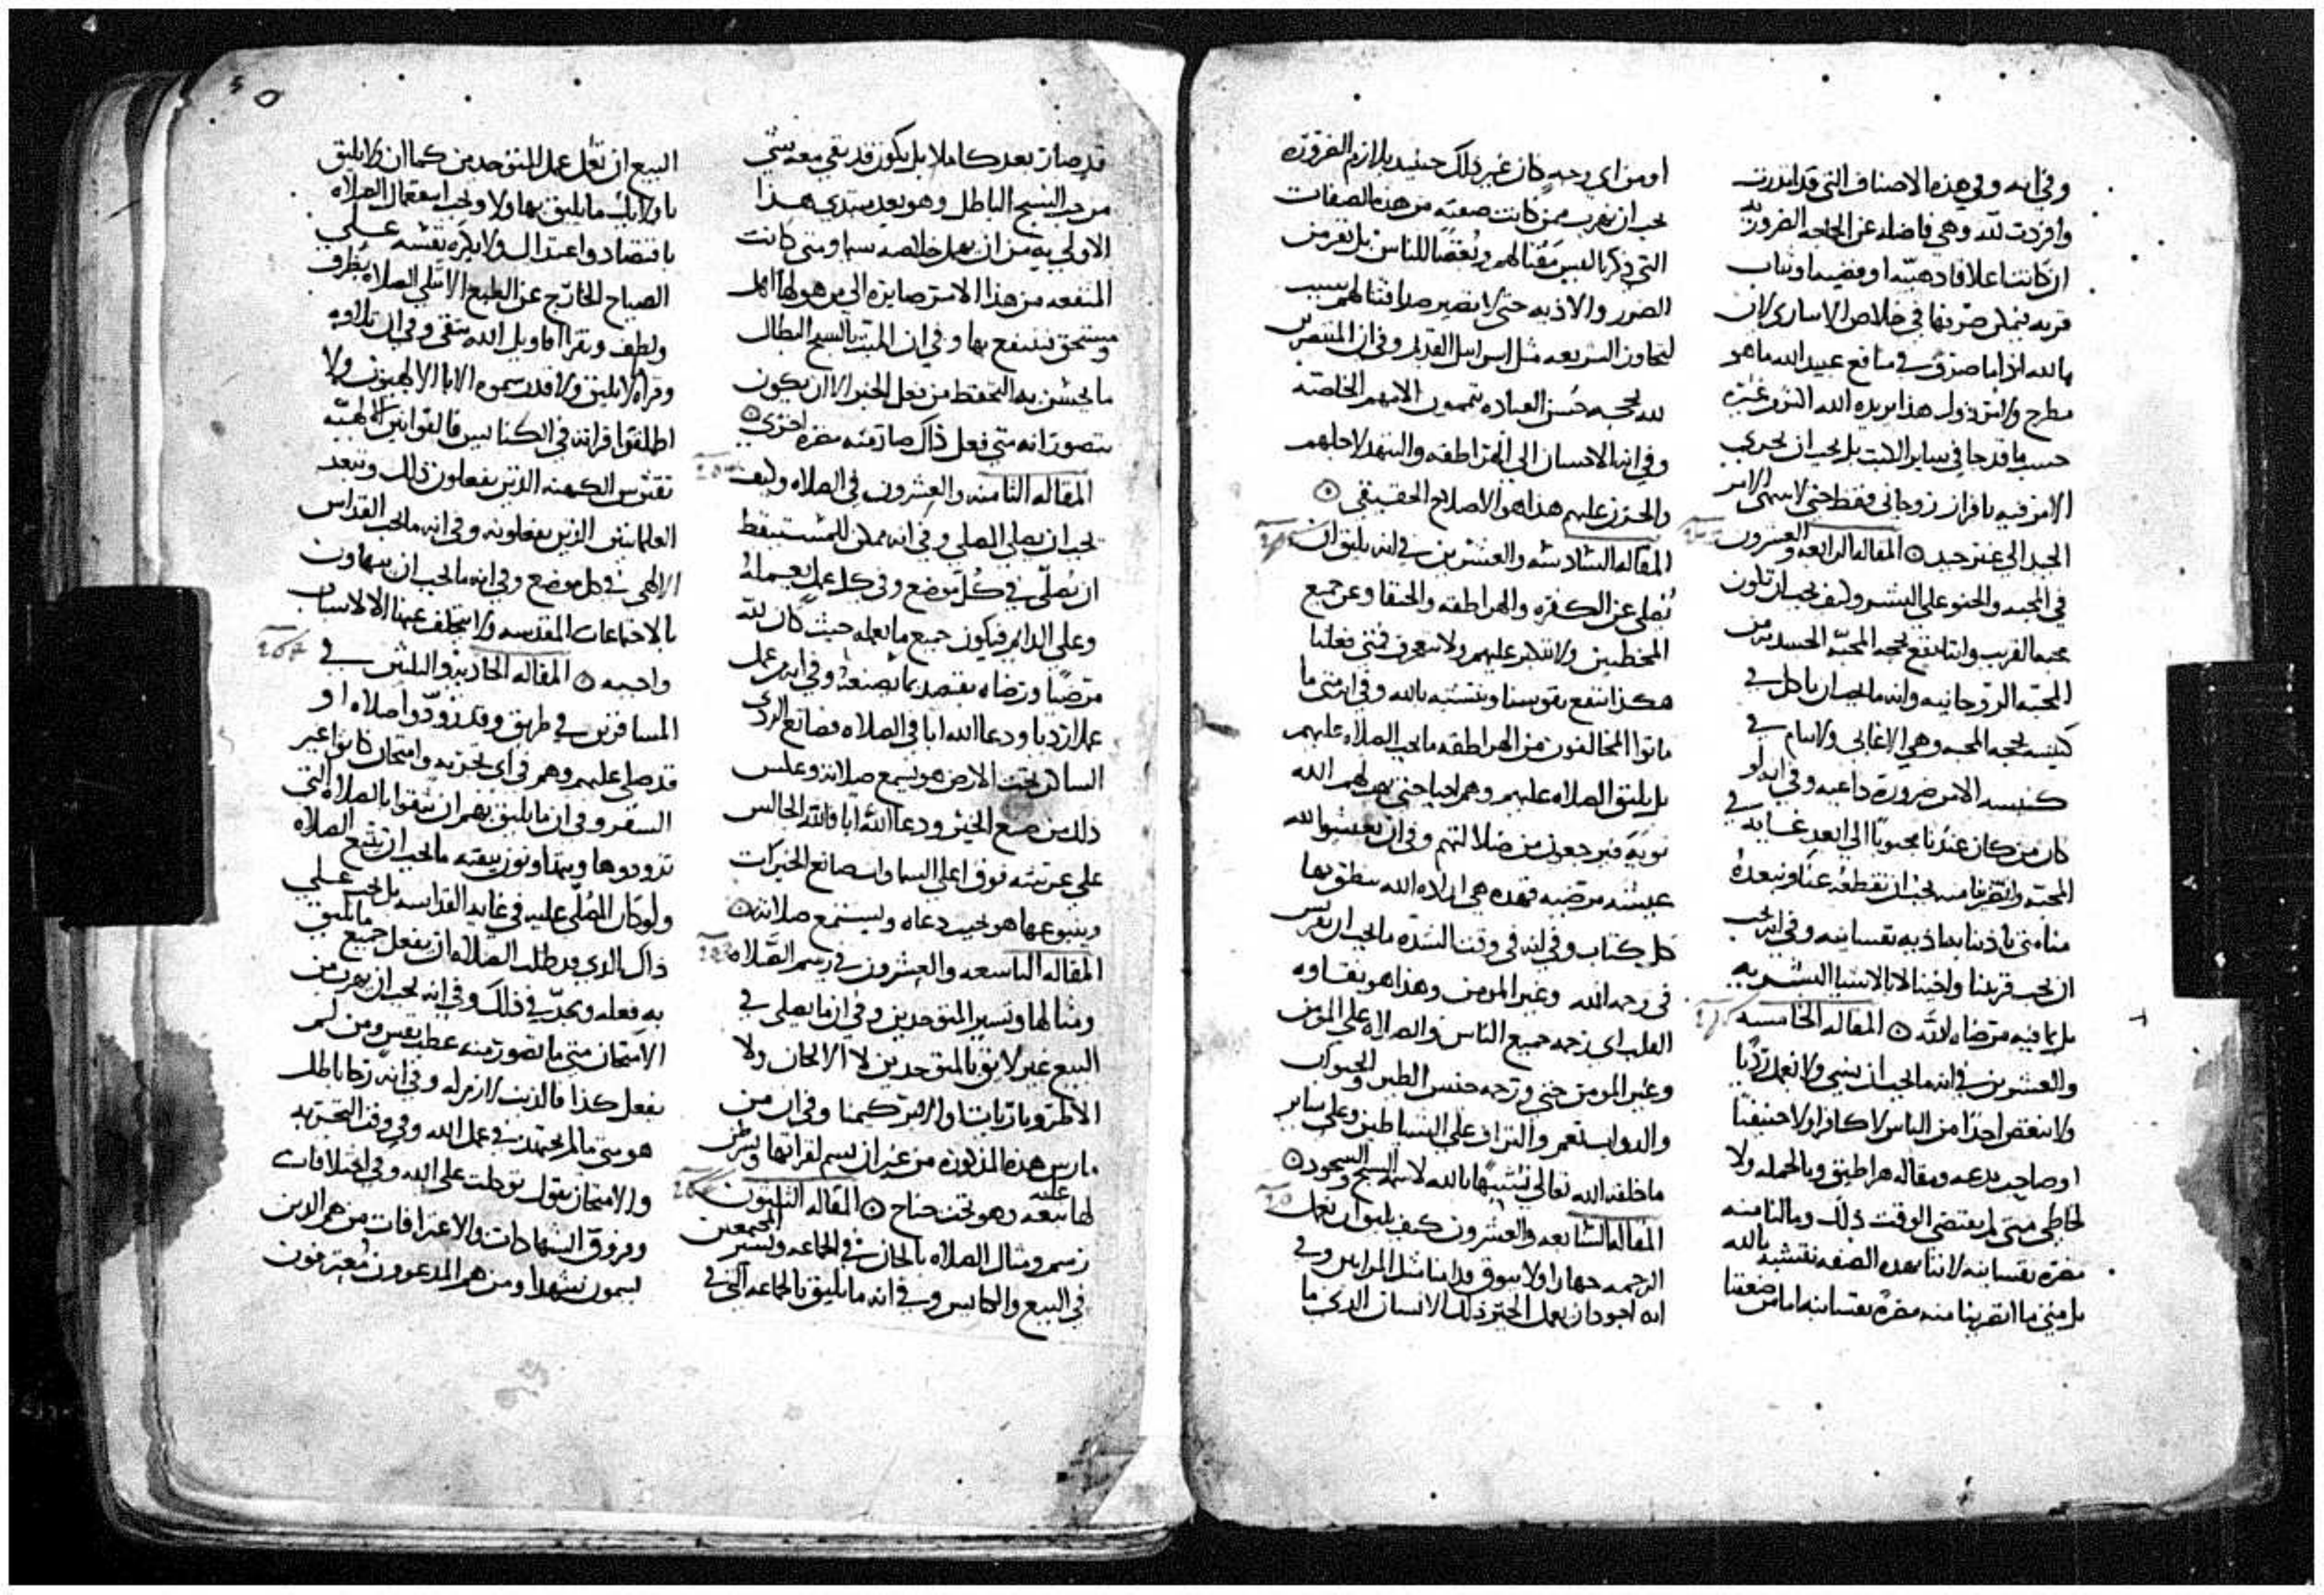 وفي انه وفي هذه الاصناف التي قد انذرت
وافردت لله وهي فاضله عن الحاجه الضروريه
ان كانت اعلاقا دهبيه او فضيه او ثياب
قد يمكن صرفها في خلاص الاسارى لان
بالله اذا ما صرف في منافع عبيد الله ما هو
مطرح
حسب ما قد جا في ساير الكتب بل يجب ان يجري
الامر فيه بافراز روحاني فقط حتى لا الامر
الجيد الى غير جيد ۞ المقاله الرابعه والعشرون
في المحبه والحنو على البشر وكيف يجب ان تكون
محبه القريب واننا نقع بحجه المحبه الجسديه من
المحبه الروحانيه وانه ما يجب ان ناكل في
كنيسه بحجه المحبه وهي الاغابي ولا ننام في
كنيسه الا من ضرورة داعيه وفي انه لو
كان من كان عندنا محبوبا الى ابعد غايه في
المحبه وانضرنا منه يجب ان نقطعه عنا ونبعده
منا متى ناذينا به اذيه نفسانيه وفي انه يجب
ان نحب قريبنا واخينا لا بالاشيا البشريه
بل بما فيه مرضاه لله ۞ المقاله الخامسه
والعشرين في انه ما يجب ان نسي ولا نعمل رديا
ولا نبغض احدا من الناس لا كافرا ولا حنيفيا
او صاحب بدعه ومقاله هراطيقي وبالجمله ولا
لخاطي متى لم يقتضي الوقت ذلك وما لنا منه
مضره نفسانيه لاننا بهذه الصفه نتشبه بالله
بل متى ما انضرينا منه مضره نفسانيه اما من ضعفنا
او من اي وجه كان غير ذلك حينيد بلازم الضروره
يجب ان نهرب ممن كانت صفته من هذه الصفات
التي ذكرنا ليس مقتا لهم وبغضا للناس بل نفر من
الضرر والاذيه حتى لا تصير صداقتنا لهم بسبب
لتجاوز الشريعه مثل اسرايل القديم وفي ان المنتصرين
لله بحجه حسن العباده يتممون الامهم الخاصه
وفي انها الاحسان الى الهراطقه والتنهد لاجلهم
والحزن عليهم هذا هو الاصلاح الحقيقي ۞
المقاله السادسه والعشرين في انه يليق ان
نصلي عن الكفره والهراطقه والحنفا وعن جميع
المخطيين ولا نتكبر عليهم ولا فمتى فعلنا
هكذا ننفع نفوسنا ونتشبه بالله وفي انه متى ما
ماتوا المخالفون من الهراطقه ما يجب الصلاه عليهم
بل يليق الصلاه عليهم وهم احيا حتى يهب لهم الله
توبه فيرجعون من ضلالتهم وفي ان يعيشوا لله
عيشه مرضيه فهذه هي اراده الله ينطق بها
كل كتاب وفي انه في وقت الشده ما يجب ان نفرس
في رحمه الله وغير المومن وهذا هو نقاوه
القلب اي رحمه جميع الناس والصلاه على المومن
وغير المومن حتى ورحمه جنس الطير والحيوان
والدواب نعم والتراف على الشياطين وعلى ساير
ما خلقه الله تعالى تشبيها بالله لاسمه السبح والسجود ۞
المقاله السابعه والعشرون كيف يليق ان نعمل
الرحمه جهارا ولا نبوق قدامنا مثل المرايين وفي
انه اجود ان يعمل الخير ذلك الانسان الذي ما
قد صار بعد كاملا بل يكون قد بقي معه شي
من حب السبح الباطل وهو بعد مبتدي هذا
الاولى به من ان يهمل خلاصه سيما ومتى كانت
المنفعه من هذا الامر صايره الى من هو لها اهل
ومستحق فينتفع بها وفي ان المبتلى بالسبح البطال
ما يحسن به التحفظ من فعل الخير الا ان يكون
يتصور انه متى فعل ذاك صار منه مضره اخرى ۞
المقاله الثامنه والعشرون في الصلاه وكيف
يجب ان يصلي المصلي وفي انه يمكن للمستيقظ
ان يصلي في كل موضع وفي كل عمل يعمله
وعلى الدايم فيكون جميع ما يعمله حيث كان لله
مرضيا ورضاه يقتصد بما يصنعه وفي انه من عمل
عملا رديا ودعا الله ابا في الصلاه فصانع الردي
الساكن تحت الارض هو يسمع صلاته وعكس
ذلك من صنع الخير ودعا الله ابا فالله الجالس
على عرشه فوق اعلى السماوات صانع الخيرات
وينبوعها هو يجيب دعاه ويستمع صلاته ۞
المقاله التاسعه والعشرون في رسم الصلاه
ومثالها وتسبير المتوحدين وفي ان ما يصلى في
البيع غير لايق بالمتوحدين لا الالحان ولا
الاطروباريات ولا وفي ان من
مارس هذه المذكوره من غير ان يسم لقراتها
لها تبعه وهو تحت جناح ۞ المقاله الثلثون
رسم ومثال الصلاه بالحان في الجماعه وتسبير المجتمعين
في البيع والكنايس وفي انه ما يليق بالجماعه التي في
البيع ان تعمل عمل المتوحدين كما ان لا يليق
باولايك ما يليق بها ولا ويجب استعمال الصلاه
باقتصاد واعتدال ولا يكره نفسه على
الصياح الخارج عن الطبع الا تتلى الصلاه بظرف
ولطف وتقرا اقاويل الله بتقى وفي ان تلاوه
وقراه لا يليق ولا قد رسموه الابا الالهيون ولا
اطلقوا قراته في الكنايس فالقوانين الالهيه
تفترس الكهنه الذين يفعلون ذلك وتبعد
العلمانيين الذين يفعلونه وفي انه ما يجب القداس
الالهي في كل موضع وفي انه ما يجب ان نتهاون
بالاجتماعات المقدسه ولا نتخلف عنها الا لاسباب
واجبه ۞ المقاله الحاديه والثلثين في
المسافرين في طريق وقد زودوا صلاه او
قد صلى عليهم وهم في اي تجربه وامتحان كانوا غير
السفر وفي ان ما يليق بهم ان يثقوا بالصلاه التي
تزودوها ويتهاونون بيقته ما يجب ان يتبع الصلاه
ولو كان المصلى عليه في غايه القداسه بل يجب على
ذاك الذي قد طلب الصلاه ان يفعل جميع ما يليق
به فعله ويجد في ذلك وفي انه يجب ان يهرب من
الامتحان متى ما تصور منه عطب نفس ومن لم
يفعل كذا فالذنب لازم له وفي انه رجا باطل
هو متى ما لم يجتهد في عمل الله وفي وقت التجربه
والامتحان يقول توكلت على الله وفي اختلافات
وفروق الشهادات والاعترافات من هم الذين
يسمون شهدا ومن هم المدعوون معترفون